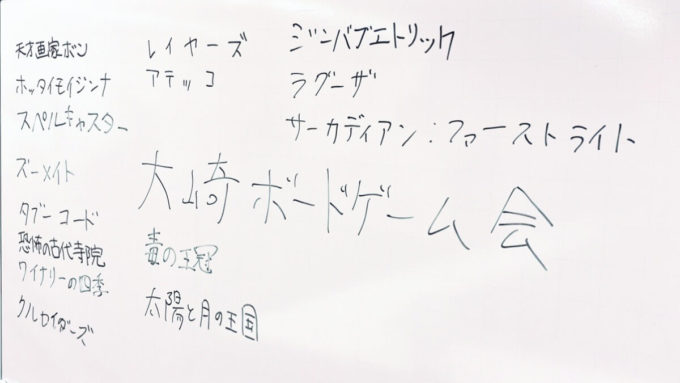 天才画家ボン
ホッタイモイジンナ
スペルキャスター
ズーメイト
タブーコード
恐怖の古代寺院
ワイナリーの四季
クルセイダーズ
レイヤーズ
アテッコ
ジンバブエトリック
ラグーザ
サーカディアン:ファーストライト
大崎ボードゲーム会
毒の王冠
太陽と月の王国